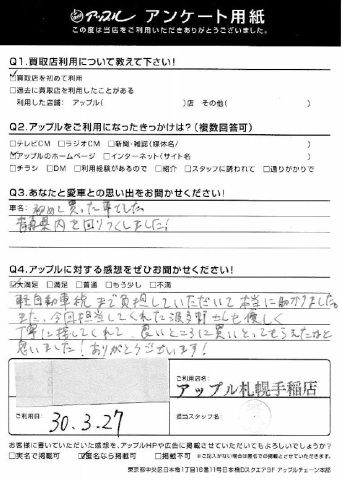 アップル アンケート用紙
この度は当店をご利用いただきありがとうございました。
Q1.買取店利用について教えて下さい!
☑買取店を初めて利用
□過去に買取店を利用したことがある
利用した店舗: アップル( )店 その他( )
Q2.アップルをご利用になったきっかけは?(複数回答可)
□テレビCM □ラジオCM □新聞・雑誌(媒体名/ )
☑アップルのホームページ □インターネット(サイト名 )
□チラシ □DM □利用経験があるので □紹介 □スタッフに誘われて □通りがかりで
Q3.あなたと愛車との思い出をお聞かせください!
車名: 初めて買った車でした。
青森県内を回りつくしました!
Q4.アップルに対する感想をぜひお聞かせください!
☑大満足 □満足 □普通 □もう少し □不満
軽自動車税まで負担していただいて本当に助かりました。
また、今回担当してくれた波多野さんも優しく
丁寧に接してくれて、良いところに買いとってもらえたなと
思いました!ありがとうございます!
ご利用店名:
アップル札幌手稲店
ご利用日: 30.3.27
担当スタッフ名:
お客様に書いていただいた感想を、アップルHPや広告に掲載させていただいてもよろしいでしょうか?
□実名で掲載可 ☑匿名なら掲載可 □掲載不可 ※ご記入がない場合は匿名での掲載とさせていただきます。
東京都中央区日本橋1丁目16番11号日本橋Dスクエア3F アップルチェーン本部